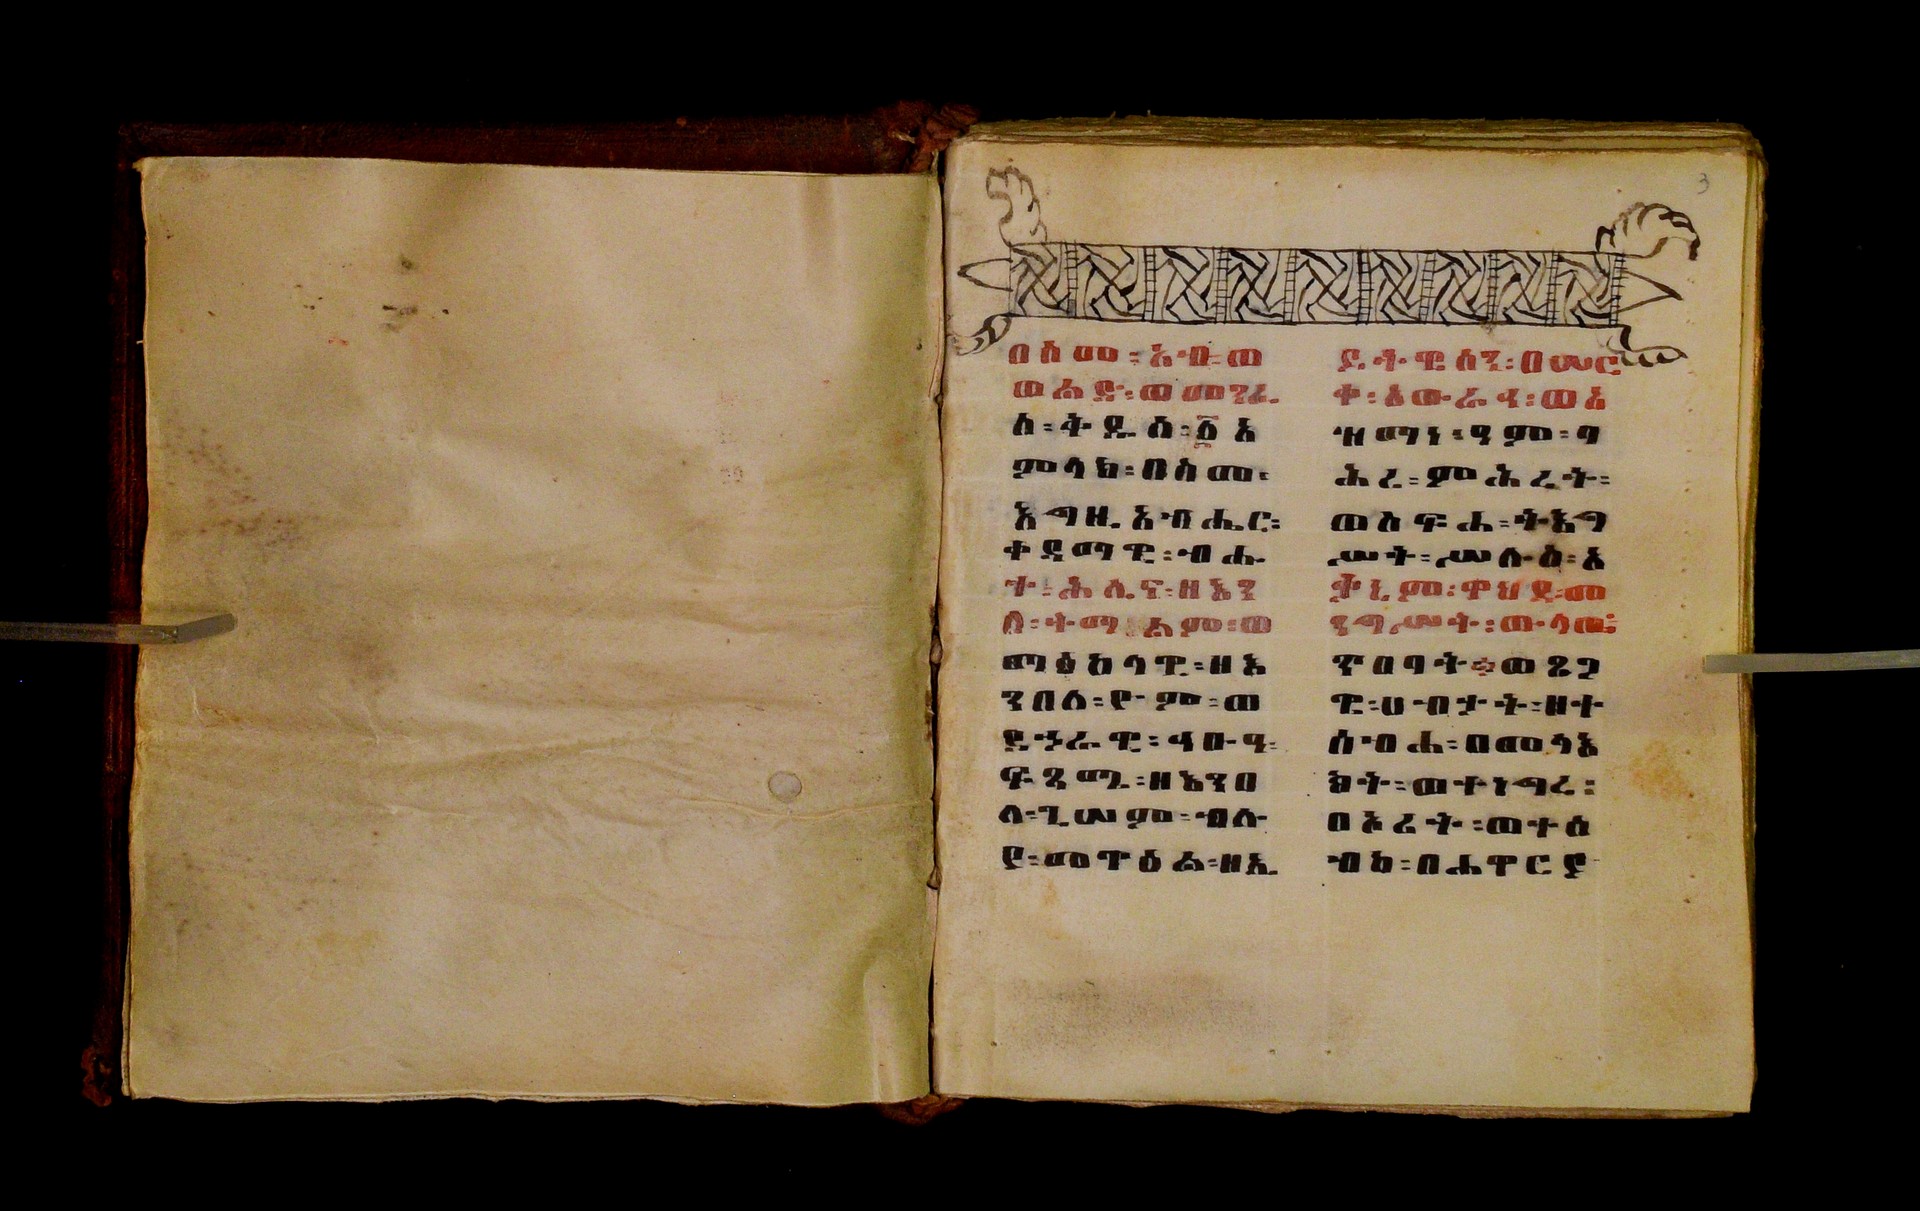 3
በስመ፡አብ፡ወ
ወልድ፡ወመንፈ
ስ፡ቅዱስ፡፩አ
ምላክ፡በስመ፡
እግዚአብሔር፡
ቀዳማዊ፡ብሑ
ት፡ሕሊና፡ዘእን
ለ፡ትማልም፡ወ
ማዕከላዊ፡ዘእ
ንበለ፡ዮም፡ወ
ደኃራዊ፡ላዑላ፡
ፍጻሜ፡ዘእንበ
ለ፡ጌሠም፡ብሉ
የ፡መዋዕል፡ዘኢ
ይትዌሰን፡በመር
ቀ፡አውራኅ፡ወአ
ዝማነ፡ዓም፡ባ
ሕረ፡ምሕረት፡
ወስፍሐ፡ትእግ
ሥት፡ሥሉስ፡አ
ቃኒም፡ዋህደ፡መ
ንግሥት፡ውላወ፡
ጥበባት፡ወጸጋ
ዊ፡ሀብታት፡ዘተ
ሰብሐ፡በመላእ
ክት፡ወተነግረ፡
በኦሪት፡ወተሰ
ብከ፡በሐዋርያ